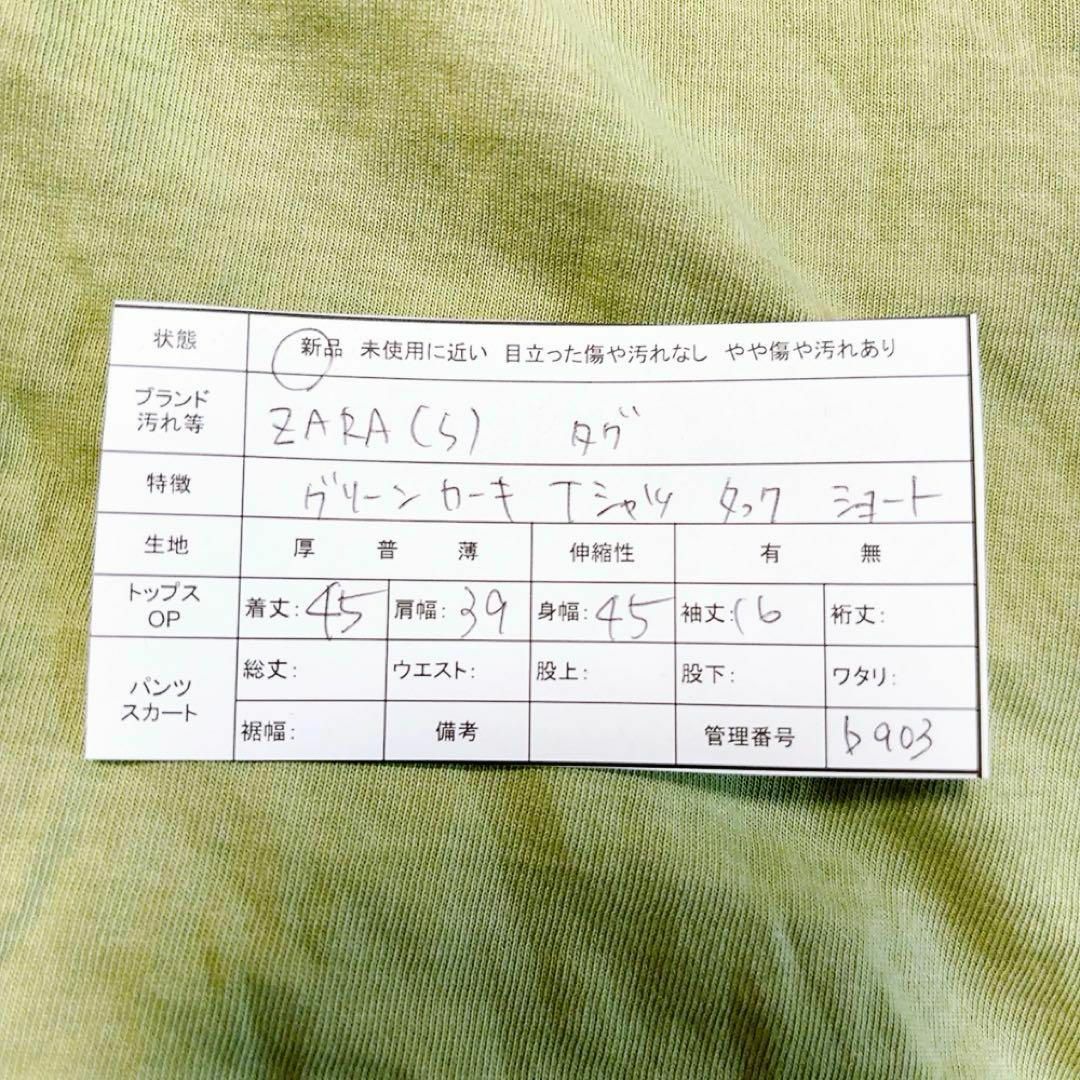 状態 新品 未使用に近い 目立った傷や汚れなし やや傷や汚れあり
ブランド
汚れ等 ZARA(S) タグ
特徴 グリーンカーキ Tシャツ タック ショート
生地 厚 普 薄 伸縮性 有 無
トップス
OP 着丈:45 肩幅:39 身幅:45 袖丈:16 裄丈:
パンツ
スカート 総丈: ウエスト: 股上: 股下: ワタリ:
裾幅: 備考 管理番号 b903